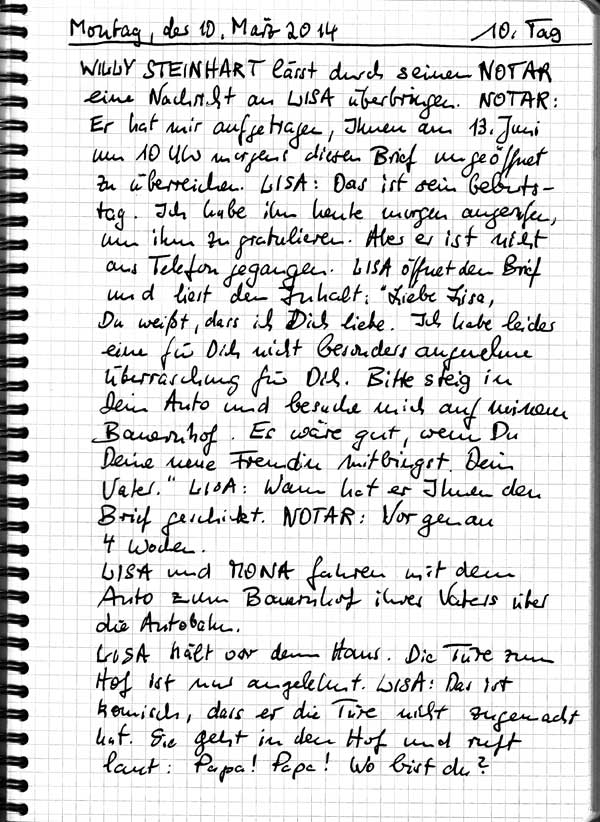 Montag, des 10. März 2014 10. Tag
WILLY STEINHART lässt durch seinen NOTAR
eine Nachricht an LISA überbringen. NOTAR:
Er hat mir aufgetragen, Ihnen am 13. Juni
um 10 Uhr morgens diesen Brief ungeöffnet
zu überreichen. LISA: Das ist sein Geburts-
tag. Ich habe ihn heute morgen angerufen,
um ihm zu gratulieren. Aber er ist nicht
ans Telefon gegangen. LISA öffnet den Brief
und liest den Inhalt: "Liebe Lisa,
Du weißt, dass ich Dich liebe. Ich habe leider
eine für Dich nicht besonders angenehme
Überraschung für Dich. Bitte steig in
Dein Auto und besuche mich auf meinem
Bauernhof. Es wäre gut, wenn Du
Deine neue Freundin mitbringst. Dein
Vater." LISA: Wann hat er Ihnen den
Brief geschickt. NOTAR: Vor genau
4 Wochen.
LISA und MONA fahren mit dem
Auto zum Bauernhof ihres Vaters über
die Autobahn.
LISA hält vor dem Haus. Die Türe zum
Hof ist nur angelehnt. LISA: Das ist
komisch, dass er die Türe nicht zugemacht
hat. Sie geht in den Hof und ruft
laut: Papa! Papa! Wo bist du?